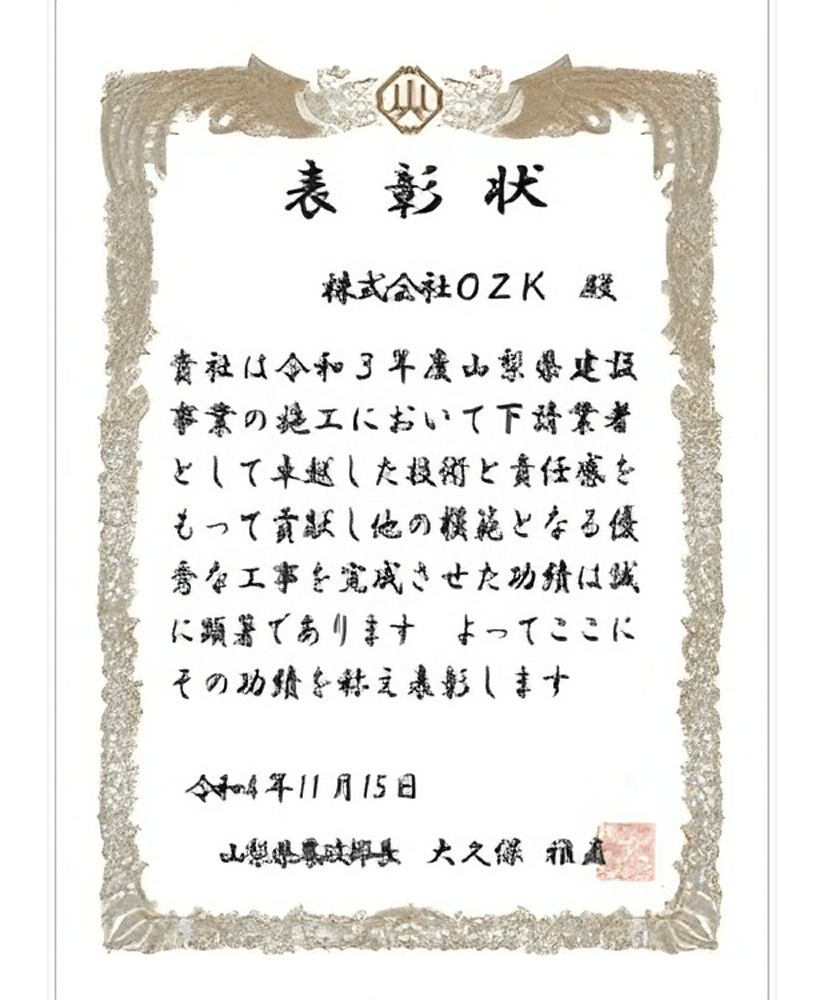 表彰状
株式会社OZK 殿
貴社は令和3年度山梨県建設
事業の施工において下請業者
として卓越した技術と責任感を
もって貢献し他の模範となる優
秀な工事を完成させた功績は誠
に顕著であります よってここに
その功績を称え表彰します
令和4年11月15日
山梨県農政部長 大久保 雅